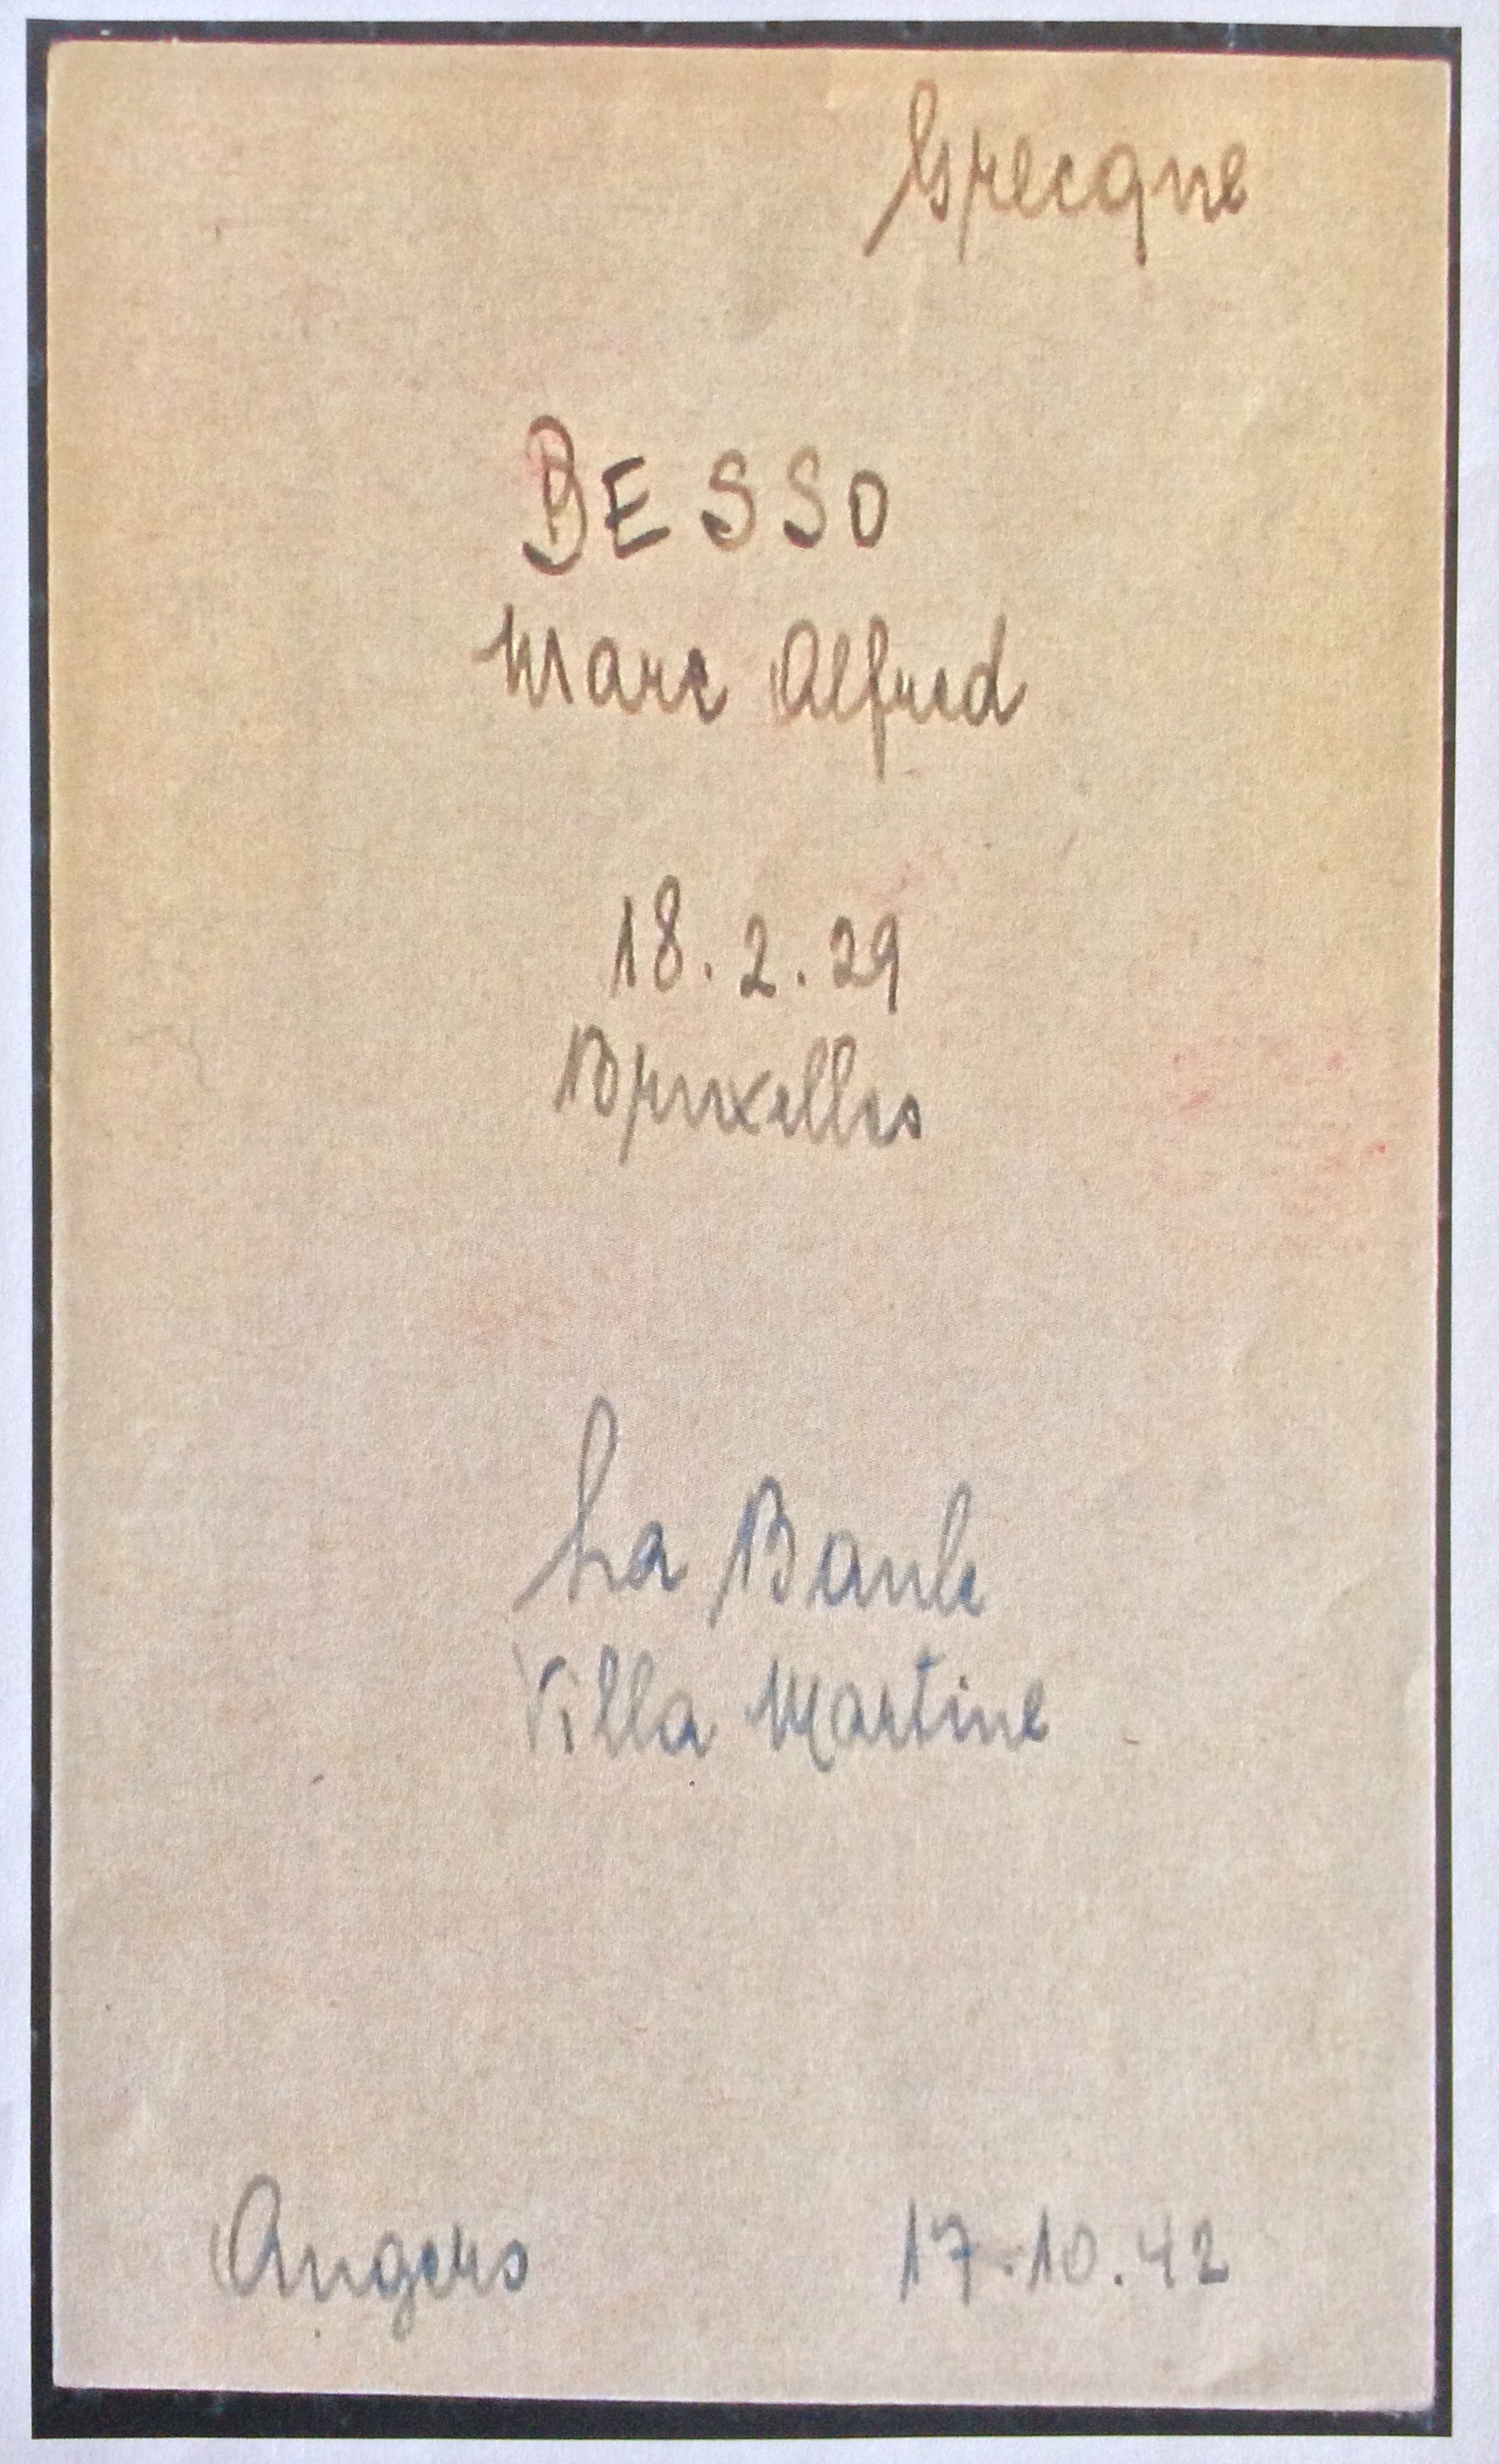 Grecque
BESSO
Marc Alfred
18.2.29
Bruxelles
La Baule
Villa Martine
Angers 17.10.42